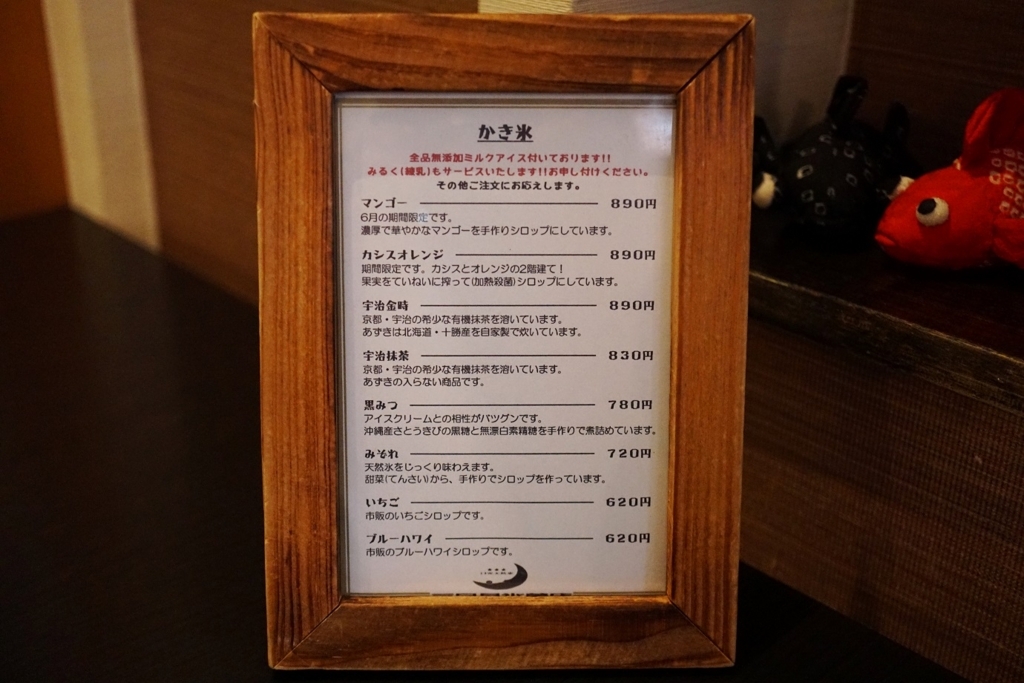 かき氷
全品無添加ミルクアイス付いております!!
みるく(練乳)もサービスいたします!!お申し付けください。
その他ご注文にお応えします。
マンゴー 890円
6月の期間限定です。
濃厚で華やかなマンゴーを手作りシロップにしています。
カシスオレンジ 890円
期間限定です。カシスとオレンジの2階建て！
果実をていねいに搾って(加熱殺菌)シロップにしています。
宇治金時 890円
京都・宇治の希少な有機抹茶を溶いています。
あずきは北海道・十勝産を自家製で炊いています。
宇治抹茶 830円
京都・宇治の希少な有機抹茶を溶いています。
あずきの入らない商品です。
黒みつ 780円
アイスクリームとの相性がバツグンです。
沖縄産さとうきびの黒糖と無漂白素精糖を手作りで煮詰めています。
みぞれ 720円
天然氷をじっくり味わえます。
甜菜(てんさい)から、手作りでシロップを作っています。
いちご 620円
市販のいちごシロップです。
ブルーハワイ 620円
市販のブルーハワイシロップです。